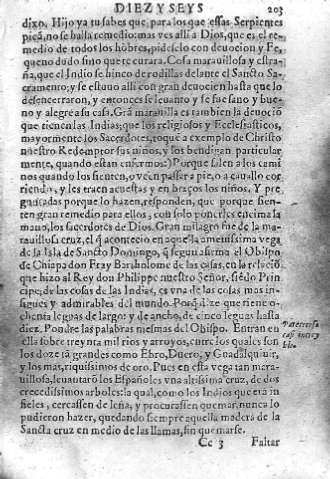 DIEZ Y SEYS 203
dixo, Hijo ya tu sabes que, para los que essas Serpientes
picã, no se halla remedio: mas ves alli à Dios, que es el re-
medio de todos los hõbres, pideselo con deuocion y Fe,
que no dudo sino que te curara. Cosa marauillosa y estra-
ña, que el Indio se hinco de rodillas delante el Sancto Sa-
cramento; y se estuuo alli con gran deuocien hasta que lo
desencerraron, y entonces se leuanto y se fue sano y bue-
no y alegre a su casa. Grã marauilla es tambien la deuociõ
que tienen las Indias; que los religiosos y Ecclesiasticos,
mayormente los Sacerdotes, toque a exemplo de Christo
nuestro Redemptor sus niños, y los bendigan particular
mente, quando estan enfermos: Porque salen a los cami
nos quando los sienten, o vẽ en passer a pie, o a cauallo cor
riendo, y les traen acuestas y en braços los niños. Y pre,
gũtadas porque lo hazen, responden, que porque sien-
ten gran remedio para ellos, con solo ponerles encima la
mano, los sacerdotes de Dios. Gran milagro fue de la ma-
rauillosa cruz, el q̃ acontecio en aquella amenissima vega
de la Isla de Sancto Domingo, q̃ segun afirma el Obispo
de Chiapa don Fray Bartholome de las casas, en la relaciõ
que hizo al Rey don Philippe nuestro Señor, siẽdo Prin
cipe; de las cosas de las Indias, es vna de las cosas mas in-
signes y admirables del mundo. Porq̃ dize que tiene o-
chenta leguas de largo: y de ancho, de cinco leguas hasta
diez. Pondre las palabras mesmas del Obispo. Entran en
ella sobre treynta mil rios y arroyos, entre los quales son
los doze tã grandes como Ebro, Duero, y Guadalquiuir,
y los mas, riquissimos de oro. Pues en esta vega tan mara-
uillosa, leuantarõ los Españoles vna altissima cruz, de dos
crecedissimos arboles: la qual, como los Indios que erã in
fieles, cercassen de leña, y procurassen quemar, nunca lo
pudieron hazer, quedando siempre aquella madera de la
Sancta cruz en medio de las llamas, sin quemarse.
Cc 3 Faltar